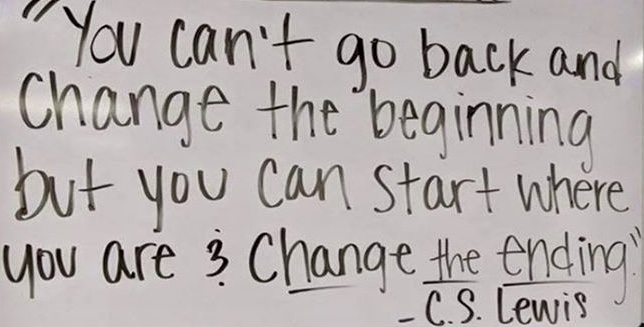 "You can't go back and
change the beginning
but you can start where
you are & change the ending"
- C.S. Lewis